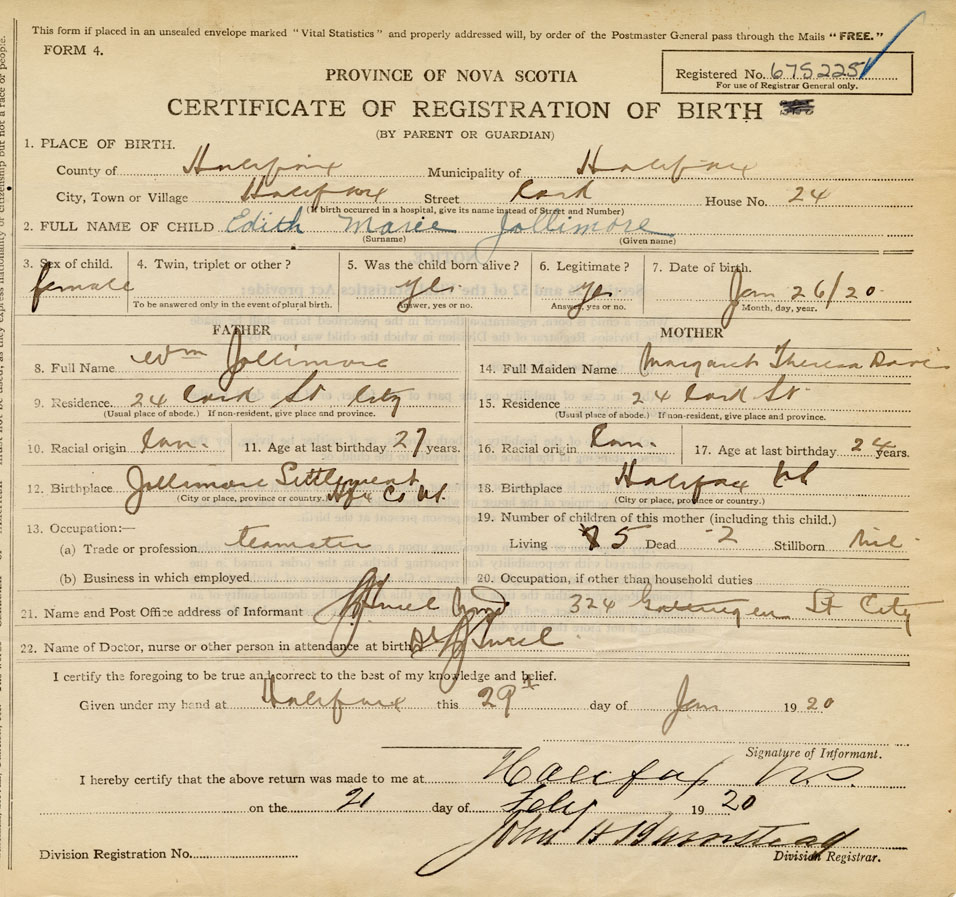 This form if placed in an unsealed envelope marked "Vital Statistics" and properly addressed will, by order of the Postmaster General pass through the Mails "FREE."
FORM 4.
PROVINCE OF NOVA SCOTIA
Registered No. 675225
For use of Registrar General only.
CERTIFICATE OF REGISTRATION OF BIRTH
(BY PARENT OR GUARDIAN)
1. PLACE OF BIRTH.
County of Halifax Municipality of Halifax
City, Town or Village Halifax Street House No. 24
(If birth occurred in a hospital, give its name instead of Street and Number)
2. FULL NAME OF CHILD Edith Marie Jollimore
(Surname) (Given name)
3. Sex of child. 4. Twin, triplet or other? 5. Was the child born alive? 6. Legitimate? 7. Date of birth.
female yes yes Jan 26/20
To be answered only in the event of plural birth. Answer, yes or no. Answer, yes or no. Month, day, year.
FATHER MOTHER
8. Full Name Wm Jollimore 14. Full Maiden Name Margaret Theresa
9. Residence. 24 St City 15. Residence 24 St
(Usual place of abode.) If non-resident, give place and province. (Usual place of abode.) If non-resident, give place and province.
10. Racial origin Can. 11. Age at last birthday 27 years. 16. Racial origin Can. 17. Age at last birthday 24 years.
12. Birthplace Jollimore Settlement Hfx Co NS. 18. Birthplace Halifax NS
(City or place, province or country.) (City or place, province or country.)
13. Occupation:— 19. Number of children of this mother (including this child.)
(a) Trade or profession teamster Living 5 Dead 2 Stillborn Nil
(b) Business in which employed 20. Occupation, if other than household duties
21. Name and Post Office address of Informant 324 Gottingen St City
22. Name of Doctor, nurse or other person in attendance at birth Dr
I certify the foregoing to be true and correct to the best of my knowledge and belief.
Given under my hand at Halifax this 29 day of Jan 1920
Signature of Informant.
I hereby certify that the above return was made to me at Halifax NS.
on the 21 day of Feby 1920
John H Barnstead
Division Registration No. Division Registrar.